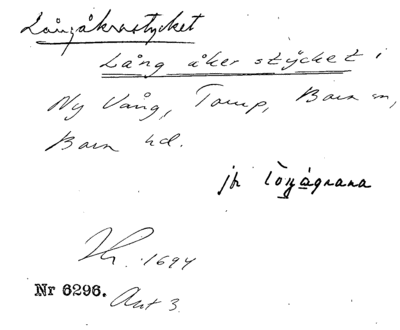 Långåkrastycket
Lång åker stÿcket i
Ny Vång, Torup, Bara sn,
Bara hd.
jfr
1694
Nr 6296. Avt 3.